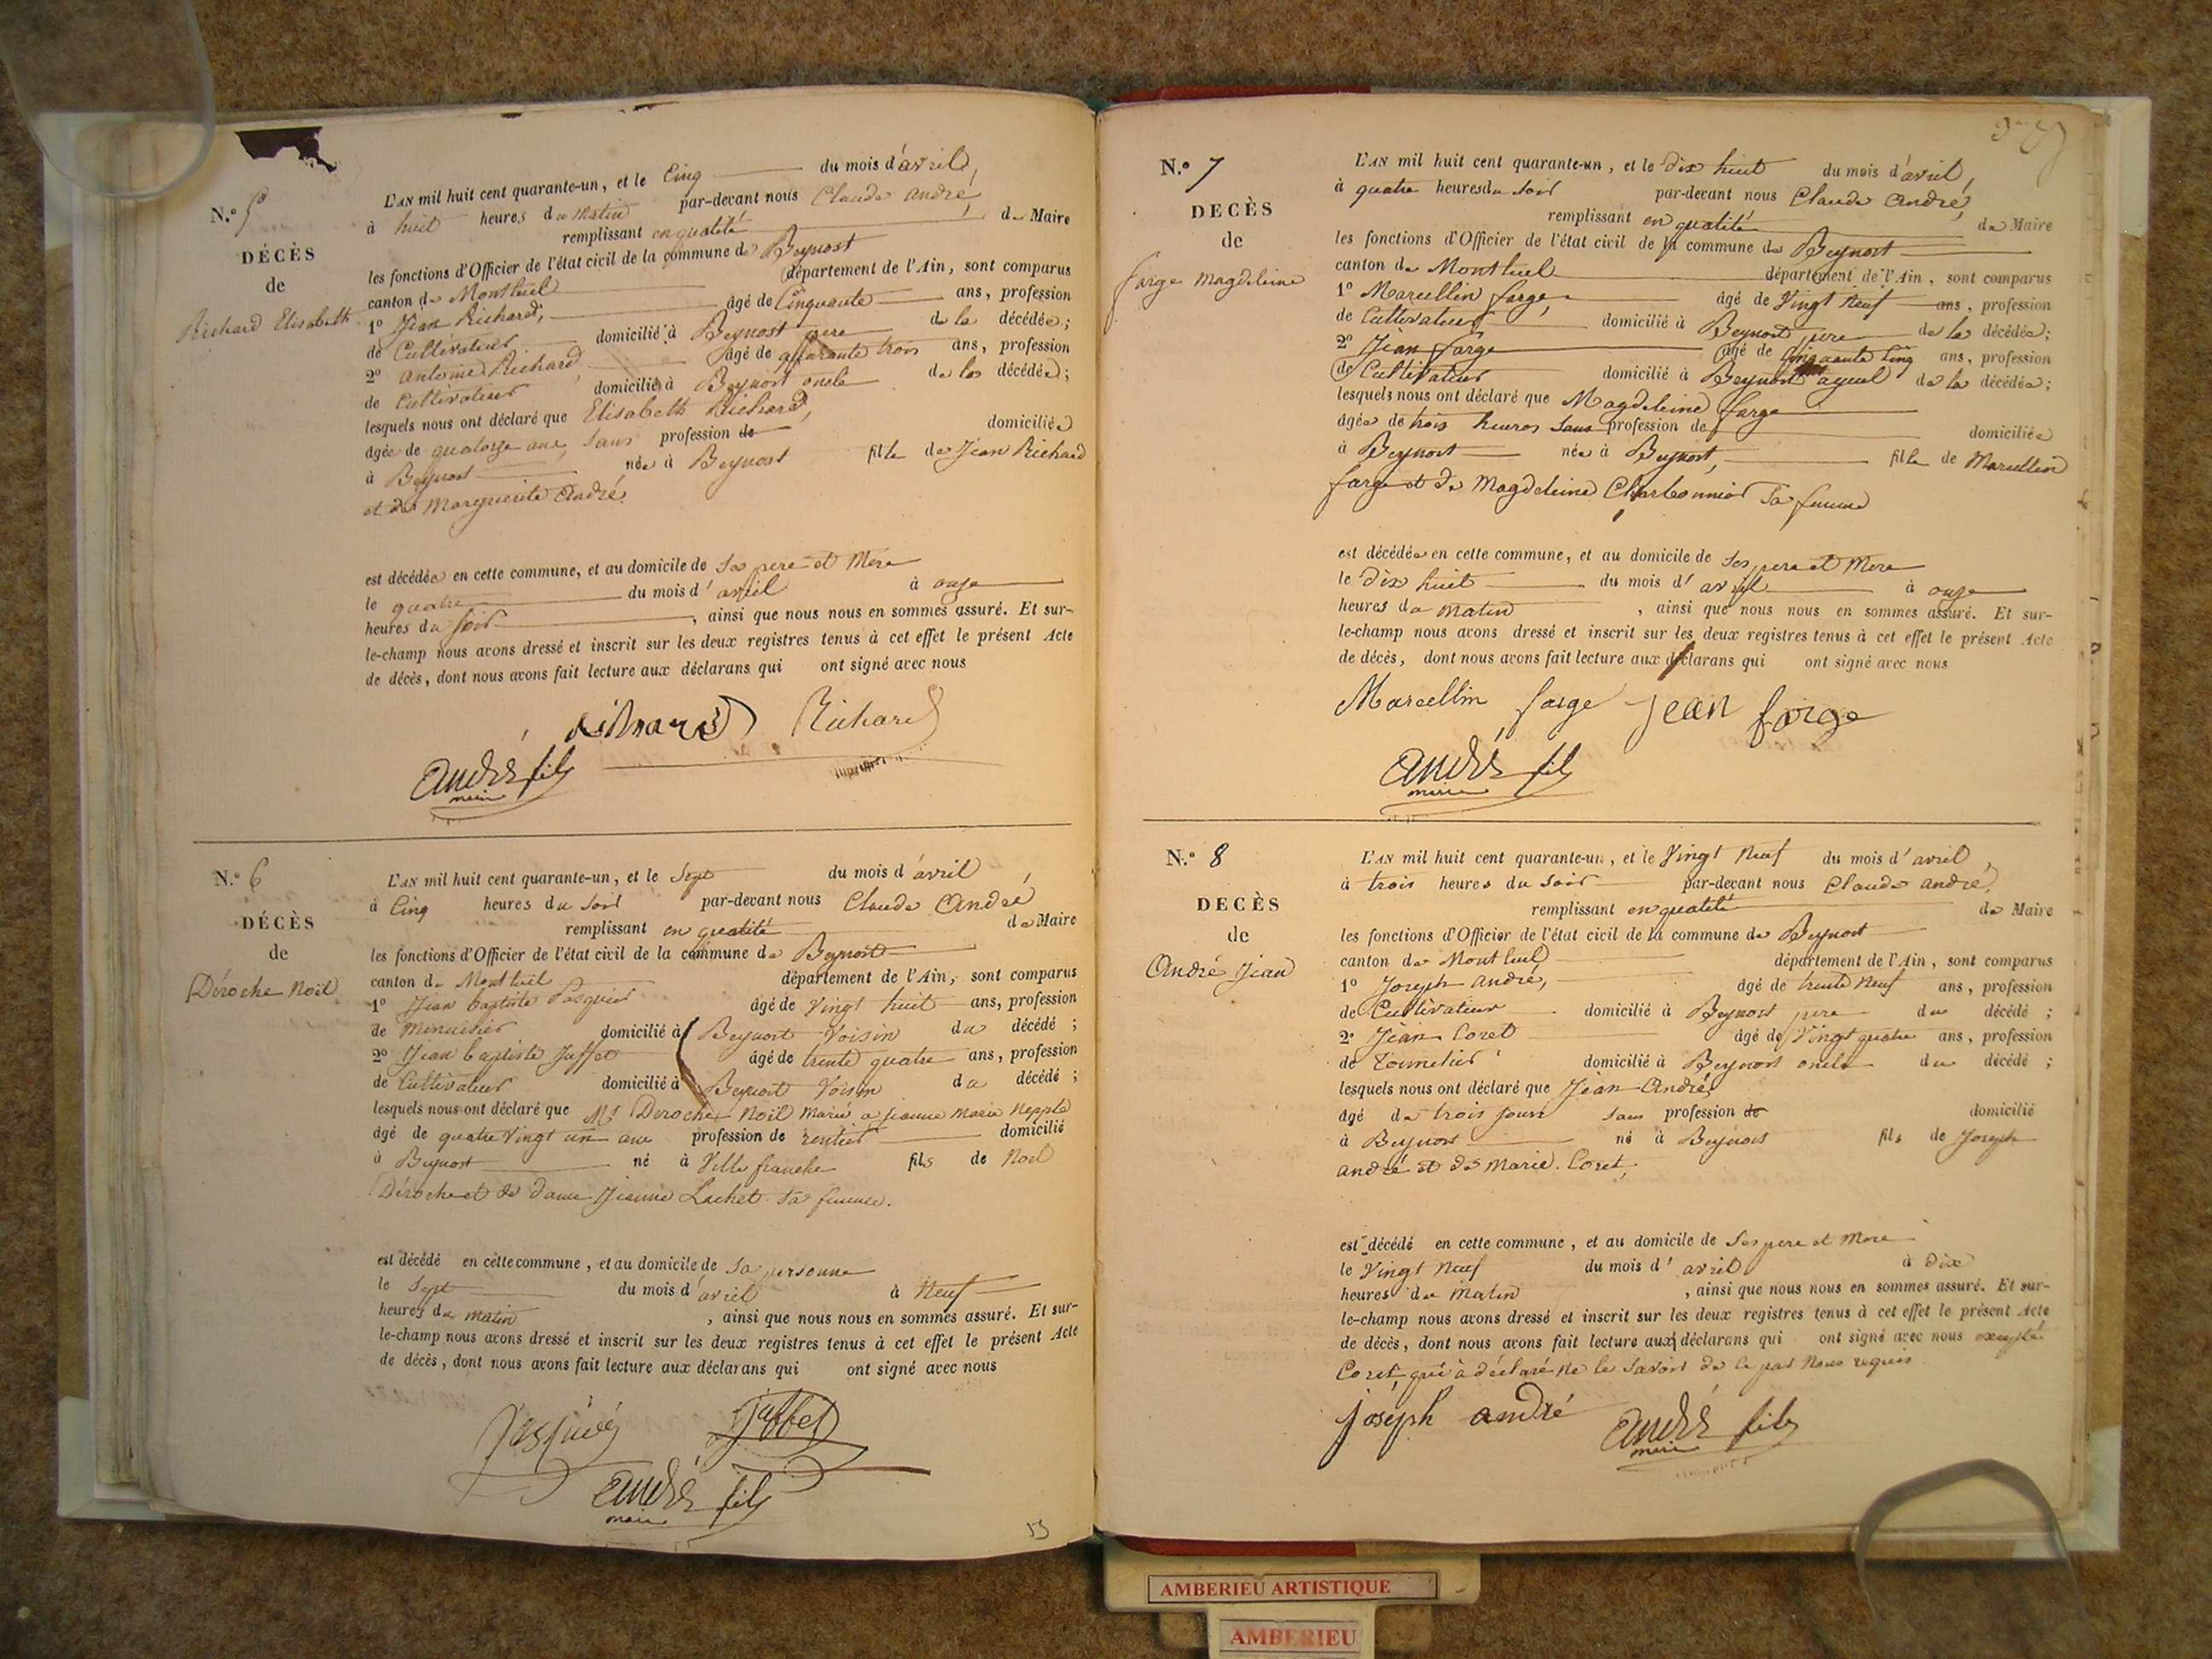 N.º 5
DÉCÈS
de
Richard Elisabeth
L'AN mil huit cent quarante-un, et le Cinq du mois d'avril,
à huit heures du Matin par-devant nous Claude André,
remplissant en qualité de Maire
les fonctions d'Officier de l'état civil de la commune de Beynost
canton de Montluel département de l'Ain, sont comparus
1º Jean Richard, âgé de Cinquante ans, profession
de Cultivateur domicilié à Beynost pere de la décédée;
2º antoine Richard âgé de quarante trois ans, profession
de Cultivateur domicilié à Beynost oncle de la décédée;
lesquels nous ont déclaré que Elisabeth Richard,
âgée de quatorze ans, Sans profession de domiciliée
à Beynost née à Beynost fille de Jean Richard
et de Marguerite André.
est décédée en cette commune, et au domicile de Ses pere et Mere
le quatre du mois d'avril à onze
heures du Soir, ainsi que nous nous en sommes assuré. Et sur-
le-champ nous avons dressé et inscrit sur les deux registres tenus à cet effet le présent Acte
de décès, dont nous avons fait lecture aux déclarans qui ont signé avec nous
Richard Richard
André fils
maire
N.º 6
DÉCÈS
de
Déroche Noël
L'AN mil huit cent quarante-un, et le Sept du mois d'avril
à Cinq heures du Soir par-devant nous Claude André
remplissant en qualité de Maire
les fonctions d'Officier de l'état civil de la commune de Beynost
canton de Montluel département de l'Ain, sont comparus
1º Jean baptiste Pasquier âgé de Vingt huit ans, profession
de Menuisier domicilié à Beynost Voisin du décédé;
2º Jean baptiste Juffet âgé de trente quatre ans, profession
de Cultivateur domicilié à Beynost Voisin du décédé;
lesquels nous ont déclaré que Mr Deroche Noël Marié a jeanne Marie
âgé de quatre Vingt un ans profession de rentier domicilié
à Beynost né à Ville franche fils de Noël
Déroche et de dame Jeanne Lachet Sa femme.
est décédé en cette commune, et au domicile de Sa personne
le Sept du mois d'avril à Neuf
heures du matin, ainsi que nous nous en sommes assuré. Et sur-
le-champ nous avons dressé et inscrit sur les deux registres tenus à cet effet le présent Acte
de décès, dont nous avons fait lecture aux déclarans qui ont signé avec nous
Juffet
André fils
maire
53
N.º 7
DECÈS
de
farge Magdeleine
L'AN mil huit cent quarante-un, et le Dix huit du mois d'avril,
à quatre heures du Soir par-devant nous Claude André,
remplissant en qualité de Maire
les fonctions d'Officier de l'état civil de la commune de Beynost
canton de Montluel département de l'Ain, sont comparus
1º Marcellin farge, âgé de Vingt Neuf ans, profession
de Cultivateur domicilié à Beynost pere de la décédée;
2º Jean farge âgé de Cinquante Cinq ans, profession
de Cultivateur domicilié à Beynost ayeul de la décédée;
lesquels nous ont déclaré que Magdeleine farge
âgée de trois heures Sans profession de domiciliée
à Beynost née à Beynost, fille de Marcellin
farge et de Magdeleine Charbonnier Sa femme
est décédée en cette commune, et au domicile de Ses pere et Mere
le Dix huit du mois d'avril à onze
heures du Matin, ainsi que nous nous en sommes assuré. Et sur-
le-champ nous avons dressé et inscrit sur les deux registres tenus à cet effet le présent Acte
de décès, dont nous avons fait lecture aux déclarans qui ont signé avec nous
Marcellin farge Jean farge
André fils
maire
N.º 8
DECÈS
de
André Jean
L'AN mil huit cent quarante-un, et le Vingt Neuf du mois d'avril,
à trois heures du Soir par-devant nous Claude André,
remplissant en qualité de Maire
les fonctions d'Officier de l'état civil de la commune de Beynost
canton de Montluel département de l'Ain, sont comparus
1º Joseph André, âgé de trente Neuf ans, profession
de Cultivateur domicilié à Beynost pere du décédé;
2º Jean Coret âgé de Vingt quatre ans, profession
de tonnelier domicilié à Beynost oncle du décédé;
lesquels nous ont déclaré que Jean André,
âgé de trois jours Sans profession de domicilié
à Beynost né à Beynost fils de Joseph
André et de Marie Coret,
est décédé en cette commune, et au domicile de Ses pere et Mere
le Vingt Neuf du mois d'avril à Dix
heures du Matin, ainsi que nous nous en sommes assuré. Et sur-
le-champ nous avons dressé et inscrit sur les deux registres tenus à cet effet le présent Acte
de décès, dont nous avons fait lecture aux déclarans qui ont signé avec nous excepté
Coret, qui à déclaré ne le Savoir de ce par Nous requis
joseph andré André fils
maire
AMBERIEU ARTISTIQUE
AMBERIEU